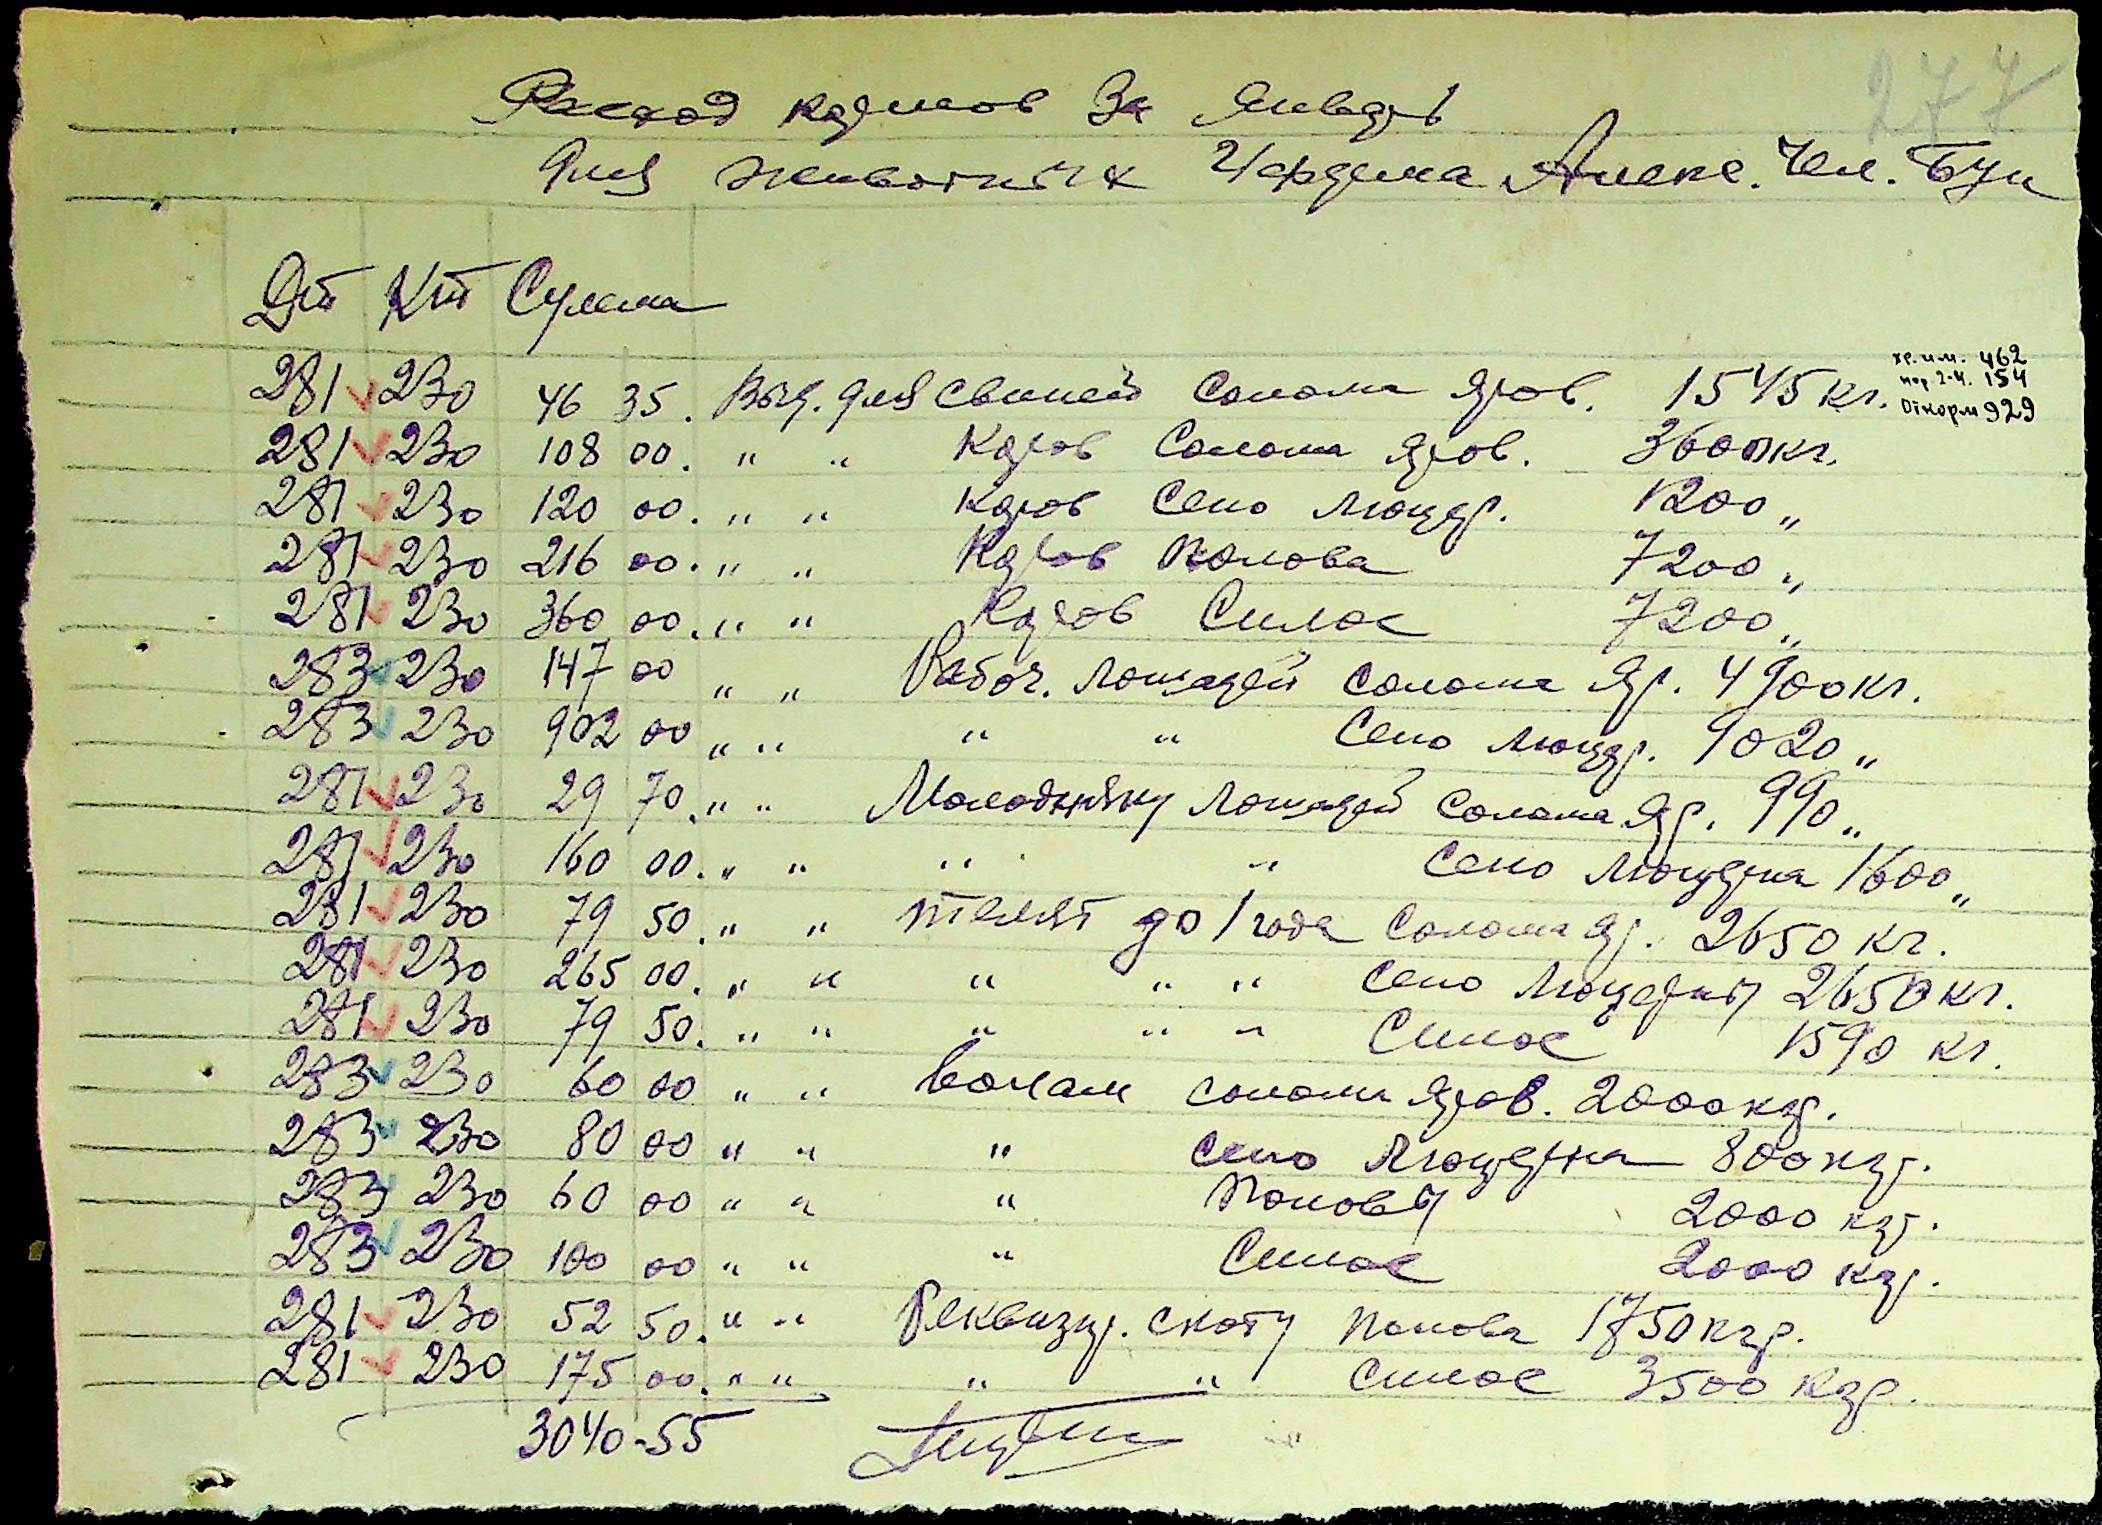 277
Расход кормов За Январь
Для животных Чардыма Алекс. Чел. Буп
Дт Кт Сумма
281 230 46 35. Выд. для свиней Солома Яров. 1545 кг. хр. и м. 462
пор. 2-4. 154
Откорм 929
281 230 108 00. " " Коров Солома Яров. 3600 кг.
281 230 120 00. " " Коров Сено люцер. 1200 "
281 230 216 00. " " Коров Полова 7200 "
281 230 360 00. " " Коров Силос 7200 "
283 230 147 00 " " Рабоч. лошадей солома Яр. 4900 кг.
283 230 902 00 " " " " Сено люцер. 9020 "
281 230 29 70. " " Молодняку лошадей солома Яр. 990 "
281 230 160 00. " " " " Сено Люцерна 1600 "
281 230 79 50. " " телят до 1 года Солома Яр. 2650 кг.
281 230 265 00. " " " " " Сено Люцерны 2650 кг.
281 230 79 50. " " " " " Силос 1590 кг.
283 230 60 00 " " Волам солома Яров. 2000 кгр.
283 230 80 00 " " " Сено Люцерна 800 кгр.
283 230 60 00 " " " Половы 2000 кгр.
283 230 100 00 " " " Силос 2000 кгр.
281 230 52 50. " " Реквизир. скоту Полова 1750 кгр.
281 230 175 00. " " " " Силос 3500 кгр.
3040-55